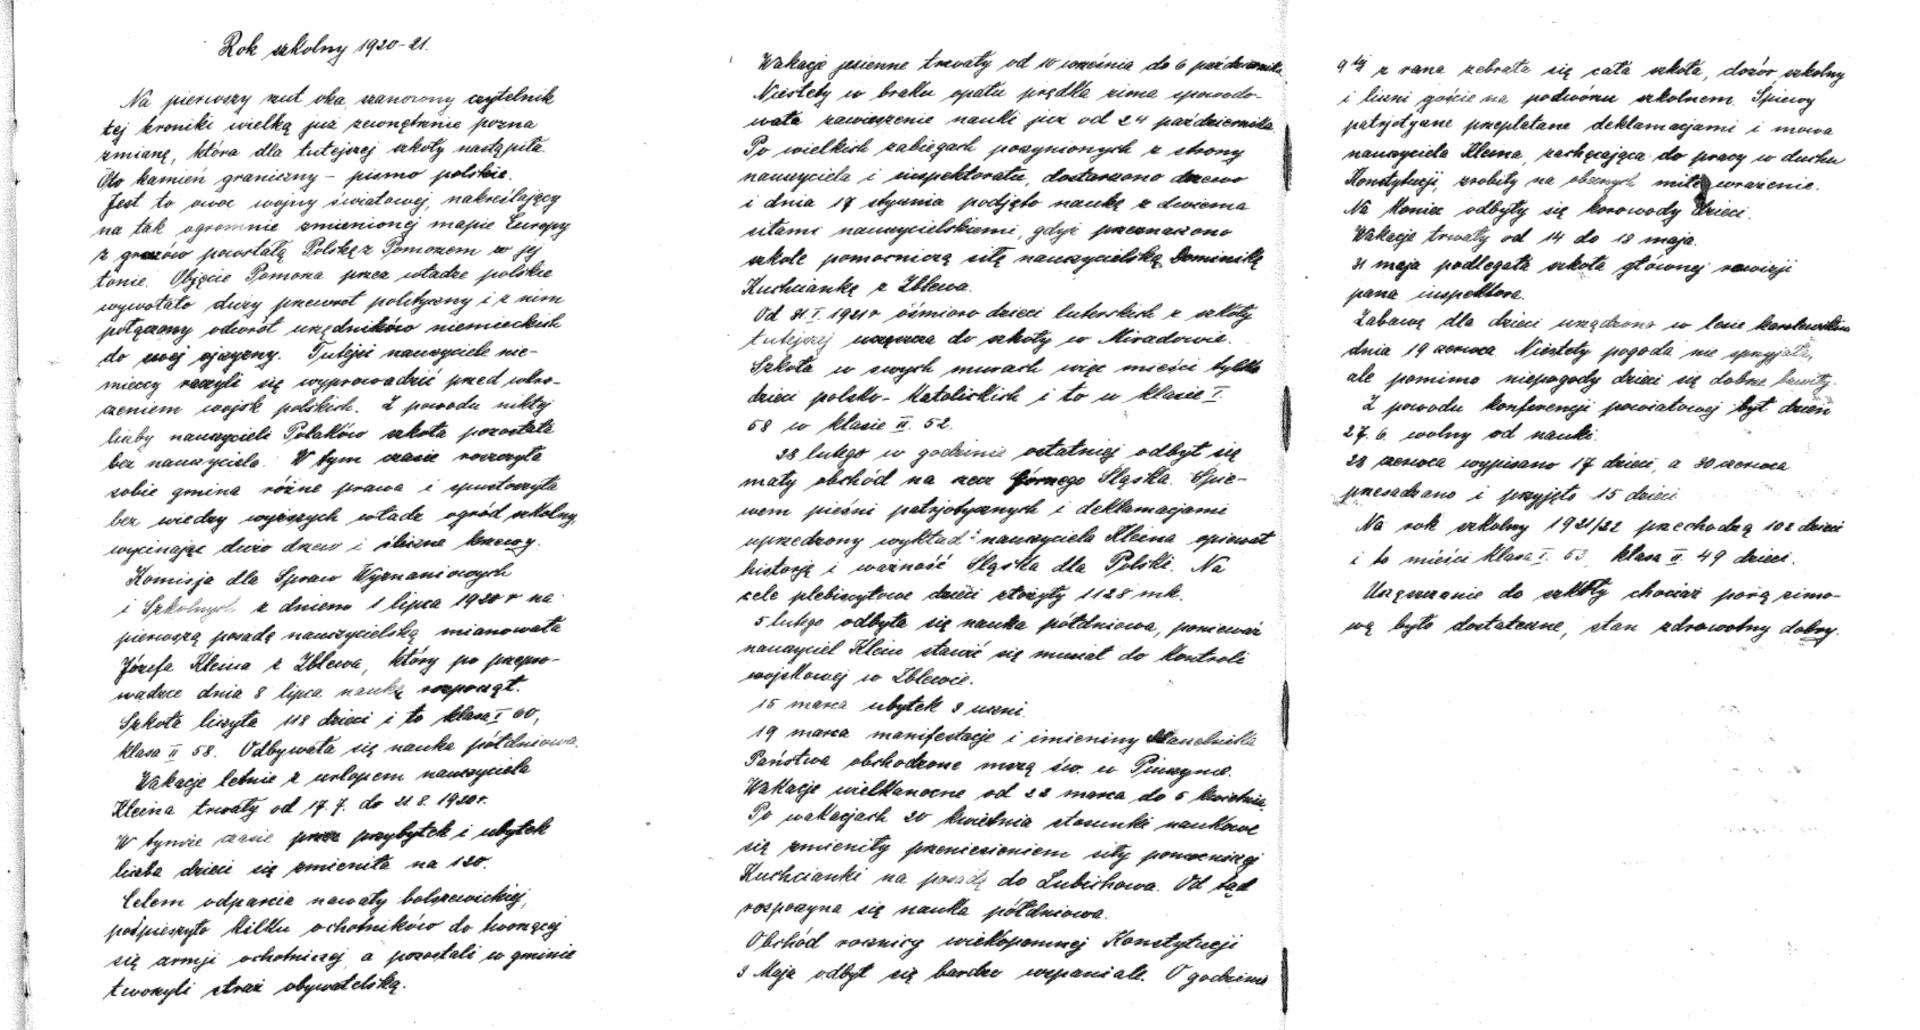 Rok szkolny 1920-21.
Na pierwszy rzut oka, szanowny czytelnik
tej kroniki wielką już zewnętrznie pozna
zmianę, która dla tutejszej szkoły nastąpiła.
Oto kamień graniczny - pismo polskie.
Jest to owoc wojny światowej, nakreślający
na tak ogromnie zmienionej mapie Europy
z gruzów powstałą Polskę z Pomorzem w jej
łonie. Objęcie Pomorza przez władze polskie
wywołało duży przewrót polityczny i z nim
połączony odwrót urzędników niemieckich
do swej ojczyzny. Tutejsi nauczyciele nie-
mieccy raczyli się wyprowadzić przed wkro-
czeniem wojsk polskich. Z powodu nikłej
liczby nauczycieli Polaków szkoła pozostała
bez nauczyciela. W tym czasie rościła
sobie gmina różne prawa i spustoszyła
bez wiedzy wyższych władz ogród szkolny,
wycinając dużo drzew i śliczne krzewy.
Komisja dla Spraw Wyznaniowych
i Szkolnych z dniem 1 lipca 1920 r na
pierwszą posadę nauczycielską mianowała
Józefa Kleina z Zblewa, który po przepro-
wadzce dnia 8 lipca naukę rozpoczął.
Szkoła liczyła 118 dzieci i to klasa I 60,
klasa II 58. Odbywała się nauka półdniowa.
Wakacje letnie z urlopem nauczyciela
Kleina trwały od 17.7. do 21 8. 1920 r.
W tymże czasie przez przybytek i ubytek
liczba dzieci się zmieniła na 120.
Celem odparcia nawały bolszewickiej,
pośpieszyło kilku ochotników do tworzącej
się armji ochotniczej, a pozostali w gminie
tworzyli straż obywatelską.
Wakacje jesienne trwały od 10 września do 6 października
Niestety w braku opału prędka zima spowodo-
wała zawieszenie nauki już od 24 października
Po wielkich zabiegach poczynionych z strony
nauczyciela i inspektoratu, dostarczono drzewo
i dnia 17 stycznia podjęto naukę z dwiema
siłami nauczycielskiemi, gdyż przeznaczono
szkole pomocniczą siłę nauczycielską Dominikę
Kuchciankę z Zblewa.
Od 31 I. 1921 r ośmioro dzieci luterskich z szkoły
tutejszej uczęszcza do szkoły w Miradowie.
Szkoła w swych murach więc mieści tylko
dzieci polsko-katolickich i to w klasie I.
58 w klasie II. 52.
28 lutego w godzinie ostatniej odbył się
mały obchód na rzecz Górnego Śląska. Śpie-
wem pieśni patrjotycznych i deklamacjami
uprzedzony wykład nauczyciela Kleina opiewał
historję i ważność Śląska dla Polski. Na
cele plebiscytowe dzieci złożyły 1128 mk.
5 lutego odbyła się nauka półdniowa, ponieważ
nauczyciel Klein stawić się musiał do kontroli
wojskowej w Zblewie.
15 marca ubytek 3 uczni.
19 marca manifestacje i imieniny Naczelnika
Państwa obchodzone mszą św. w Pinczynie.
Wakacje wielkanocne od 22 marca do 5 kwietnia.
Po wakacjach 20 kwietnia stosunki naukowe
się zmieniły przeniesieniem siły pomocniczej
Kuchcianki na posadę do Lubichowa. Od tąd
rozpoczyna się nauka półdniowa.
Obchód rocznicy wiekopomnej Konstytucji
3 Maja odbył się bardzo wspaniale. O godzinie
9 tej z rana zebrała się cała szkoła, dozór szkolny
i liczni goście na podwórzu szkolnem. Śpiewy
patrjotyczne przeplatane deklamacjami i mowa
nauczyciela Kleina, zachęcająca do pracy w duchu
Konstytucji, zrobiły na obecnych miłe wrażenie.
Na koniec odbyły się korowody dzieci.
Wakacje trwały od 14 do 18 maja.
31 maja podlegała szkoła głównej rewizji
pana inspektora.
Zabawę dla dzieci urządzono w lesie
dnia 19 czerwca. Niestety pogoda nie sprzyjała,
ale pomimo niepogody dzieci się dobrze bawiły.
Z powodu konferencji powiatowej był dzień
27. 6. wolny od nauki.
28 czerwca wypisano 17 dzieci, a 30 czerwca
przesadzano i przyjęto 15 dzieci
Na rok szkolny 1921/22 przechodzą 102 dzieci
i to mieści klasa I. 53, klasa II. 49 dzieci.
Uczęszczanie do szkoły chociaż porą zimo-
wą było dostateczne, stan zdrowotny dobry.